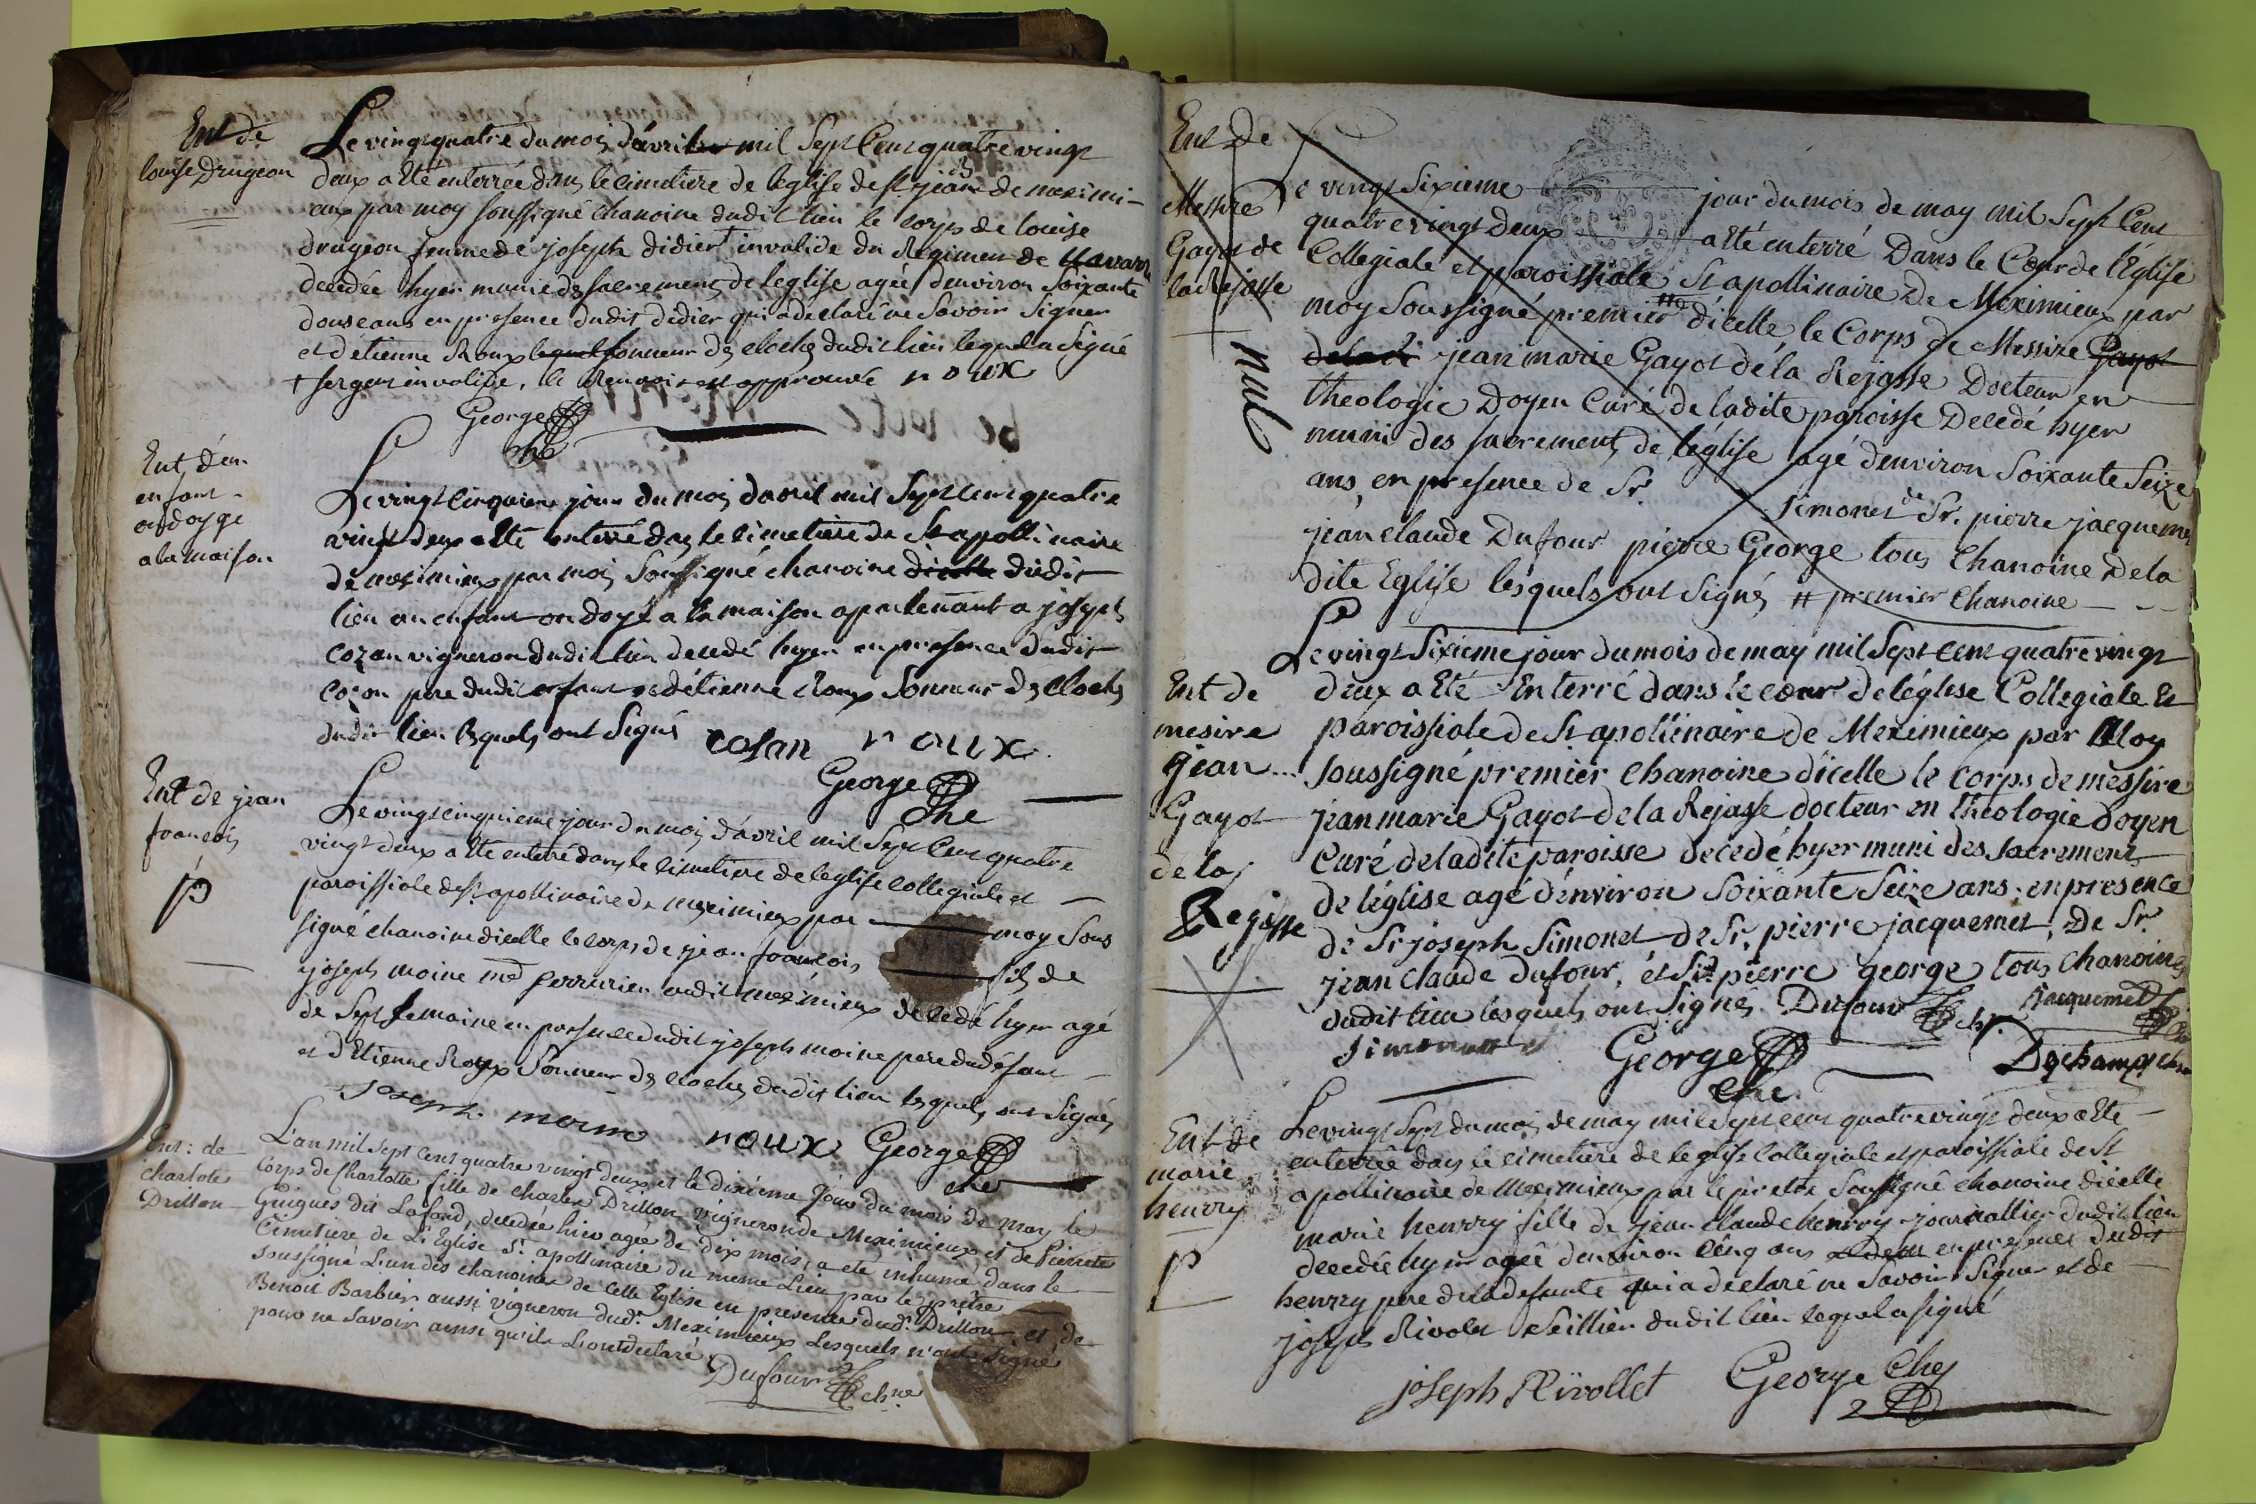 Ent de
louise Drugeon
Le vingt quatre du mois d'avril mil Sept Cent quatre vingt
deux a eté enterrée dans le cimetiere de leglise de st jean de meximi-
eux par moy soussigné chanoine dudit lieu le corps de louise
drugeon femme de joseph didier + invalide du Regiment de Navarre
decedée hyer munie des sacrements de leglise agée denviron soixante
douse ans en presence dudit didier qui a declaré ne savoir signer
et d'etienne Roux sonneur des cloches dudit lieu lequel a signé
+ sergent invalide, le Renvoi est approuvé roux
George
che
Ent d'un
enfant
ondoyé
a la maison
Le vingt cinquieme jour du mois d'avril mil sept cent quatre
vingt deux a eté enterré dans le cimetiere de St apollinaire
de meximieux par moi soussigné chanoine dicelle dudit
lieu un enfant ondoyé a la maison apartenant a joseph
cozan vigneron dudit lieu decedé hyer en presence dudit
cozon pere dudit enfant et d'étienne Roux sonneur des cloches
dudit lieu lesquels ont signé cosan roux
George
che
Ent de jean
francois
p
Le vingt cinquieme jour du mois d'avril mil Sept Cent quatre
vingt deux a eté enterré dans le cimetiere de leglise collegiale et
paroissiale de st apollinaire de meximieux par moy sous
signé chanoine dicelle le corps de jean francois fils de
joseph moine md serrurier audit meximieux decedé hyer agé
de sept semaine en presence dudit joseph moine pere du défunt
et d'Etienne Roux sonneur des cloches dudit lieu lesquels ont signés
joseph moine roux George
che
Ent: de
charlote
Drillon
L'an mil sept cent quatre vingt deux et le dixième jour du mois de may le
corps de Charlotte fille de charles Drillon vigneron de Meximieux et de Pierrette
Guigues dit Lafond, decedée hier agée de dix mois, a été inhumé dans le
Cimetiere de L'Eglise St apollinaire du meme Lieu par le prêtre
soussigné L'un des chanoines de cette Eglise en presence dud. Drillon et de
Benoit Barbier aussi vigneron dud. Meximieux Lesquels n'ont signé
pour ne savoir ainsi qu'ils L'ont declaré
Dufour chne
Ent De
Messire
Gayot de
la Rejasse
nul
Le vingt sixieme jour du mois de may mil Sept Cent
quatre vingt deux a été enterré Dans le Cœur de l'Eglise
Collegiale et paroissiale St apollinaire De Meximieux par
moy Soussigné premier # dicelle, le Corps de Messire Gayot
de la jean marie Gayot de la Rejasse Docteur en
theologie Doyen Curé de ladite paroisse Decedé hyer
muni des sacrements de l'église agé denviron Soixante Seize
ans, en presence de Sr. simonet de Sr. pierre jacquemet
jean claude Dufour pierre George tous Chanoine Dela
dite Eglise lesquels ont signés # premier Chanoine
Ent de
mesire
jean
Gayot
de la
Rejasse
Le vingt Sixieme jour du mois de may mil Sept Cent quatre vingt
deux a eté Enterré dans le cœur de léglise Collegiale et
paroissiale de St apollinaire de Meximieux par Moy
soussigné premier chanoine dicelle le corps de messire
jean marie Gayot de la Rejasse docteur en theologie doyen
Curé de ladite paroisse decedé hyer muni des Sacrement
de léglise agé d'environ Soixante Seize ans. en presence
de Sr joseph Simonet de Sr. pierre jacquemet, De Sr.
jean claude dufour, et Sr pierre george tous Chanoines
dudit lieu lesquels ont signés Dufour chne Jacquemet
Simonet George Dechamps chne
che
Ent de
marie
henrry
p
Le vingt sept du mois de may mil sept cent quatre vingt deux a ete
enterrée dans le cimetiere de leglise collegiale et paroissiale de st
apollinaire de Meximieux par le pretre soussigné chanoine dicelle
marie henrry fille de jean claude henrry journallier dudit lieu
decedée hyer agée denviron cinq ans en presence dudit
henrry pere de la defunte qui a declaré ne savoir signer et de
joseph Rivolet seillier dudit lieu lequel a signé
joseph Rivollet George che